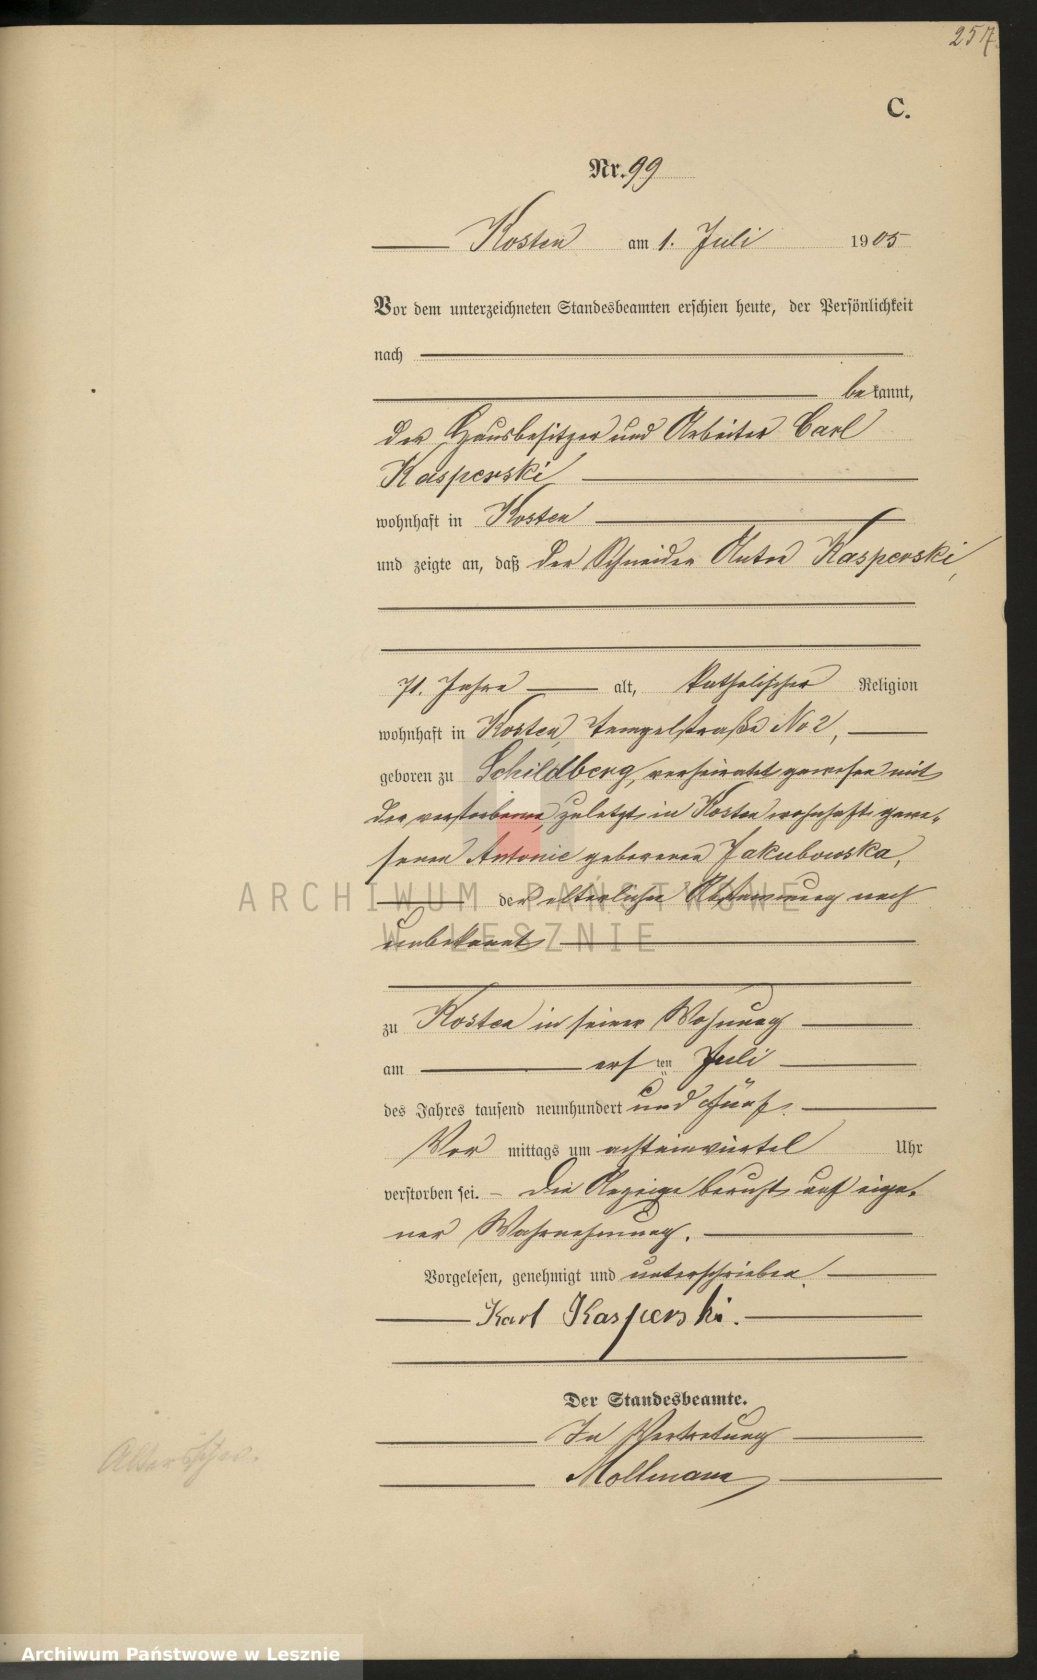 257.
C.
Nr. 99
Kosten am 1. Juli 1905
Vor dem unterzeichneten Standesbeamten erschien heute, der Persönlichkeit
nach
bekannt,
der Hausbesitzer und Arbeiter Carl
Kasperski
wohnhaft in Kosten
und zeigte an, daß der Schneider Anton Kasperski,
71. Jahre alt, katholischer Religion
wohnhaft in Kosten, Tempelstraße No 2,
geboren zu Schildberg, verheiratet gewesen mit
der verstorbenen, zuletzt in Kosten wohnhaft gewe-
senen Antonie geborenen Jakubowska,
der elterlichen Abstammung nach
unbekannt
zu Kosten in seiner Wohnung
am ersten Juli
des Jahres tausend neunhundert und fünf
Vor mittags um achteinviertel Uhr
verstorben sei. – Die Anzeige beruht auf eige-
ner Wahrnehmung.
Vorgelesen, genehmigt und unterschrieben.
Karl Kasperski.
Der Standesbeamte.
In Vertretung
Mollmann
Altersschw.
ARCHIWUM PAŃSTWOWE
W LESZNIE
Archiwum Państwowe w Lesznie